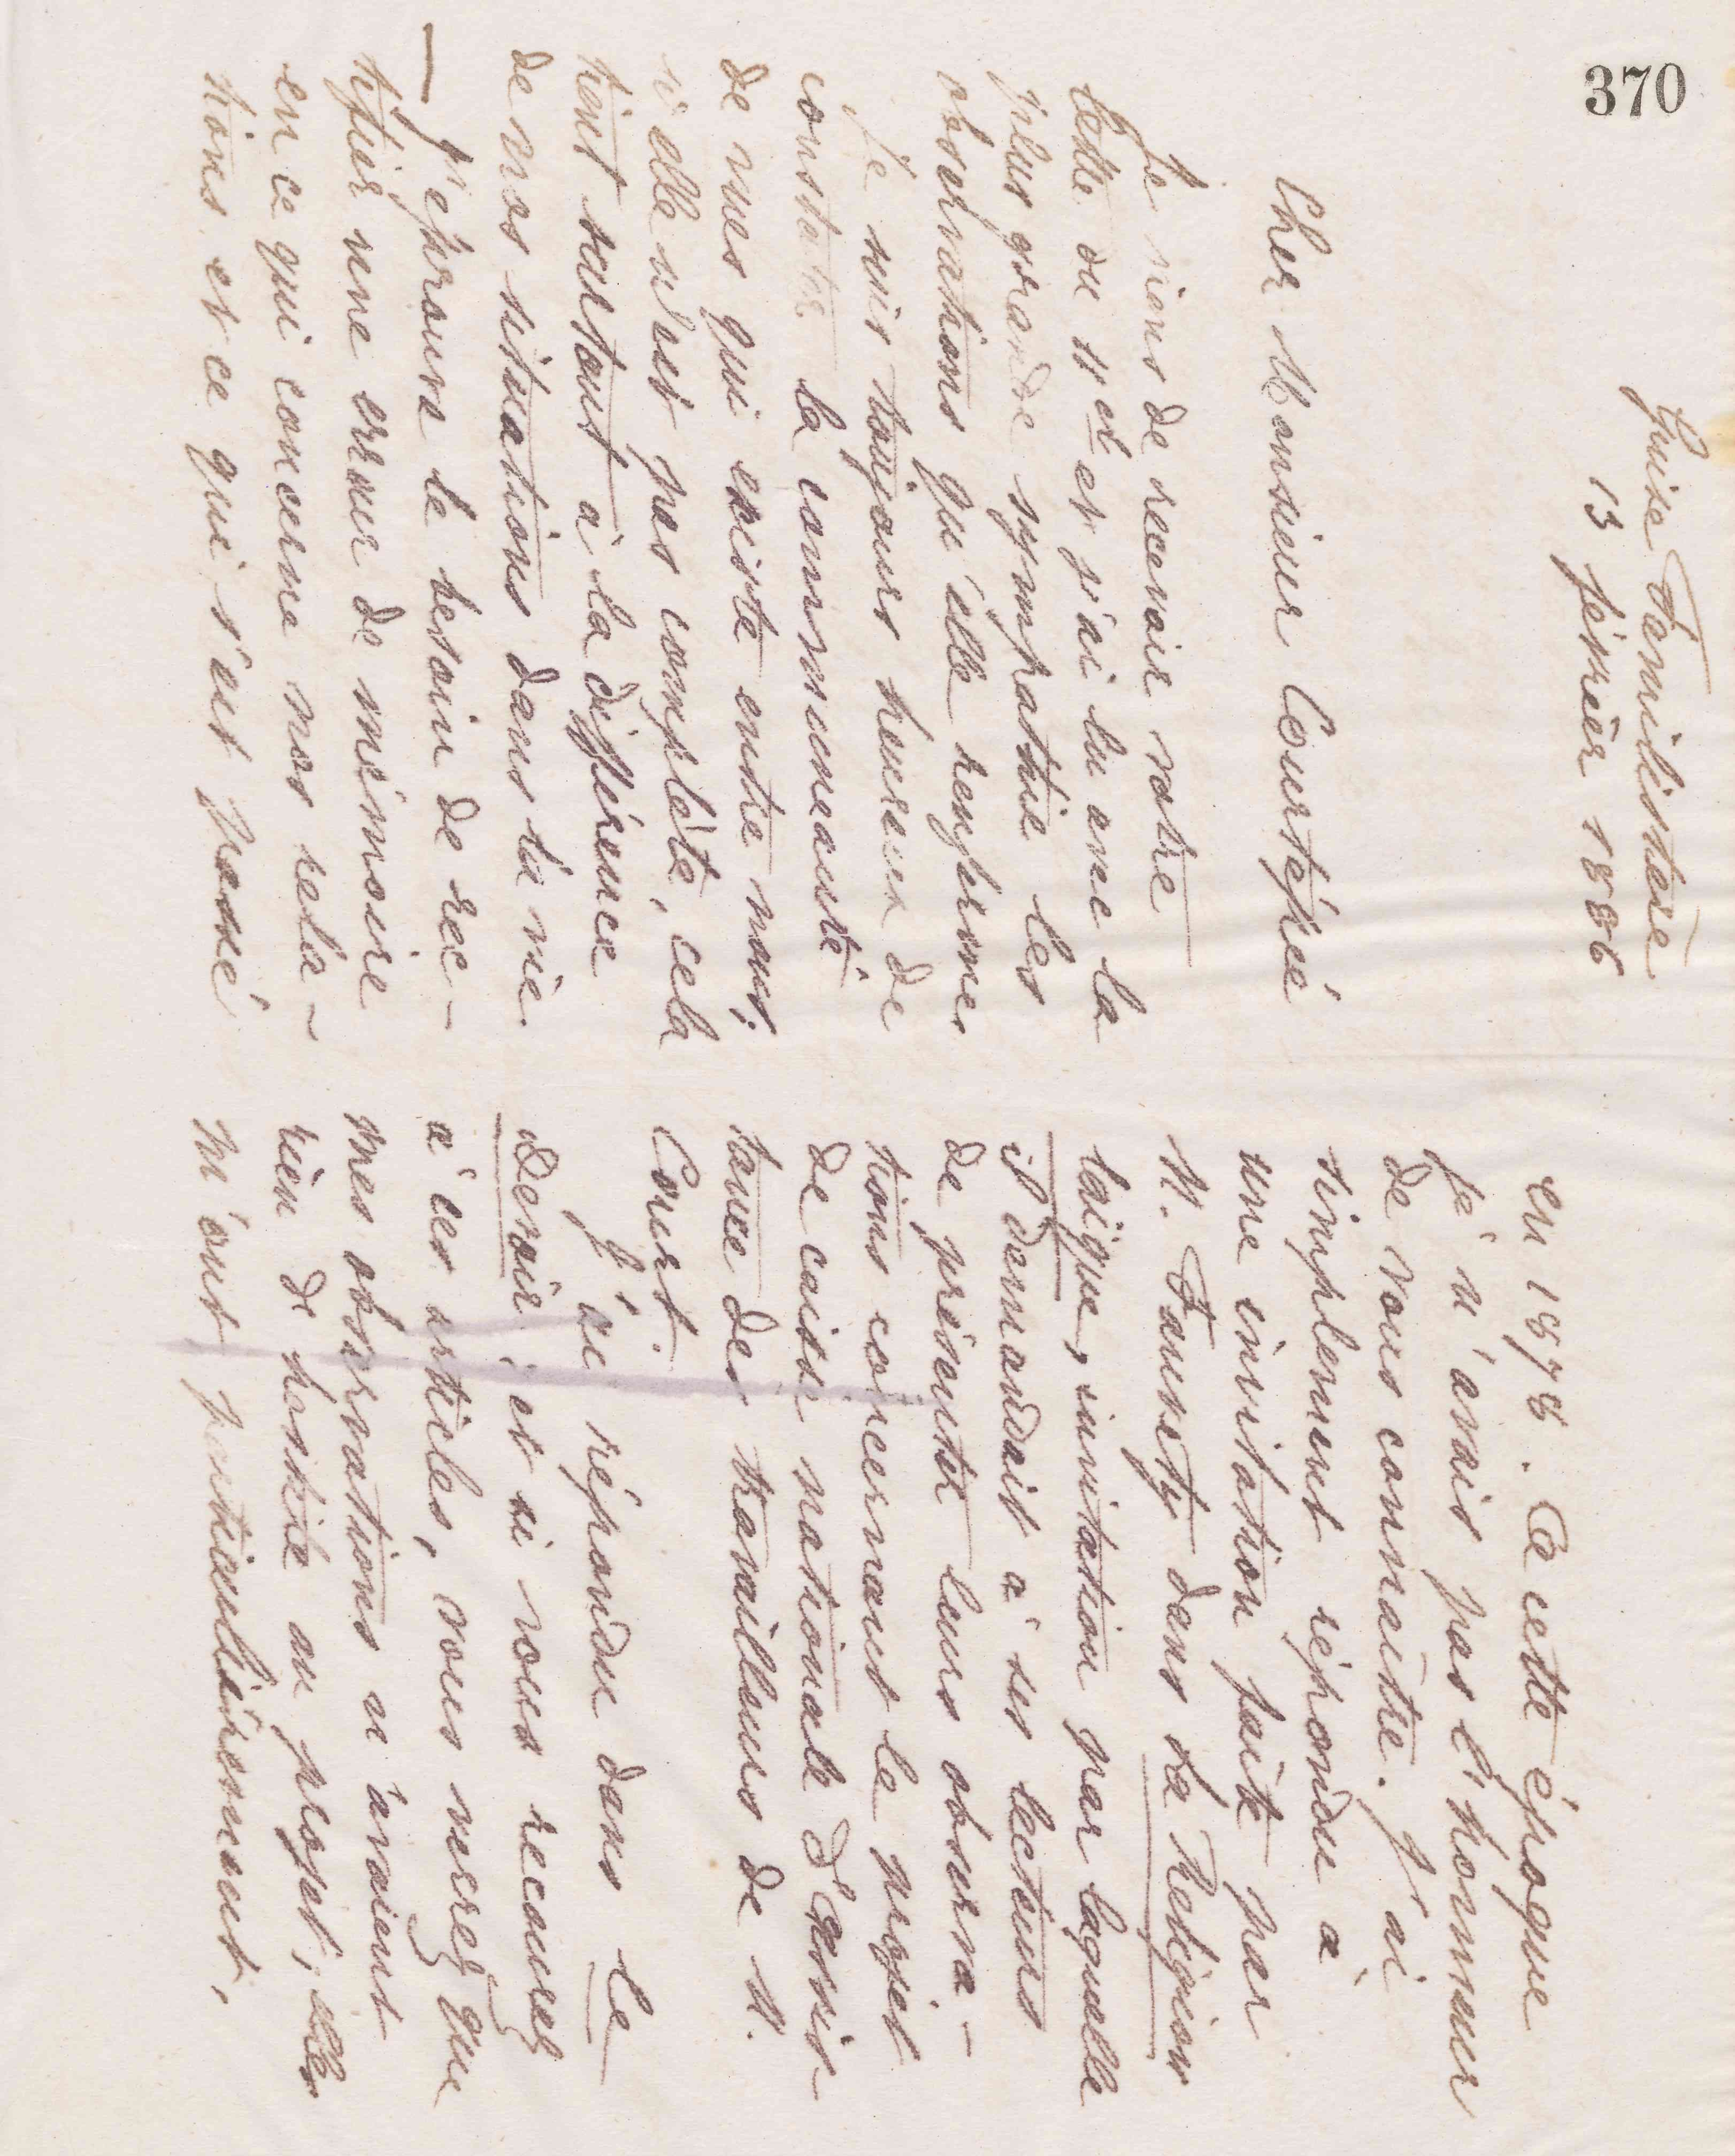 370
Guise Familistère
13 février 1886
Cher Monsieur Courtépée
Je viens de recevoir votre
lettre du 11 ct et j'ai lu avec la
plus grande sympathie les
observations qu'elle renferme.
Je suis toujours heureux de
constater la communauté
de vues qui existe entre nous;
si elle n'est pas complète, cela
tient surtout à la différence
de nos situations dans la vie.
— J'éprouve le besoin de rec-
tifier une erreur de mémoire
en ce qui concerne nos rela-
tions et ce qui s'est passé
en 1878. A cette époque
je n'avais pas l'honneur
de vous connaître. J'ai
simplement répondu à
une invitation faite par
M. Fauvety dans La Religion
laïque, invitation par laquelle
il demandait à ses lecteurs
de présenter leurs observa-
tions concernant le projet
de caisse nationale d'assis-
tance des travailleurs de M.
Court.
J'ai répondu dans le
Devoir; et si vous recourez
à ces articles, vous verrez que
mes observations n'avaient
rien de hostile au projet; elles
m'ont particulièrement,